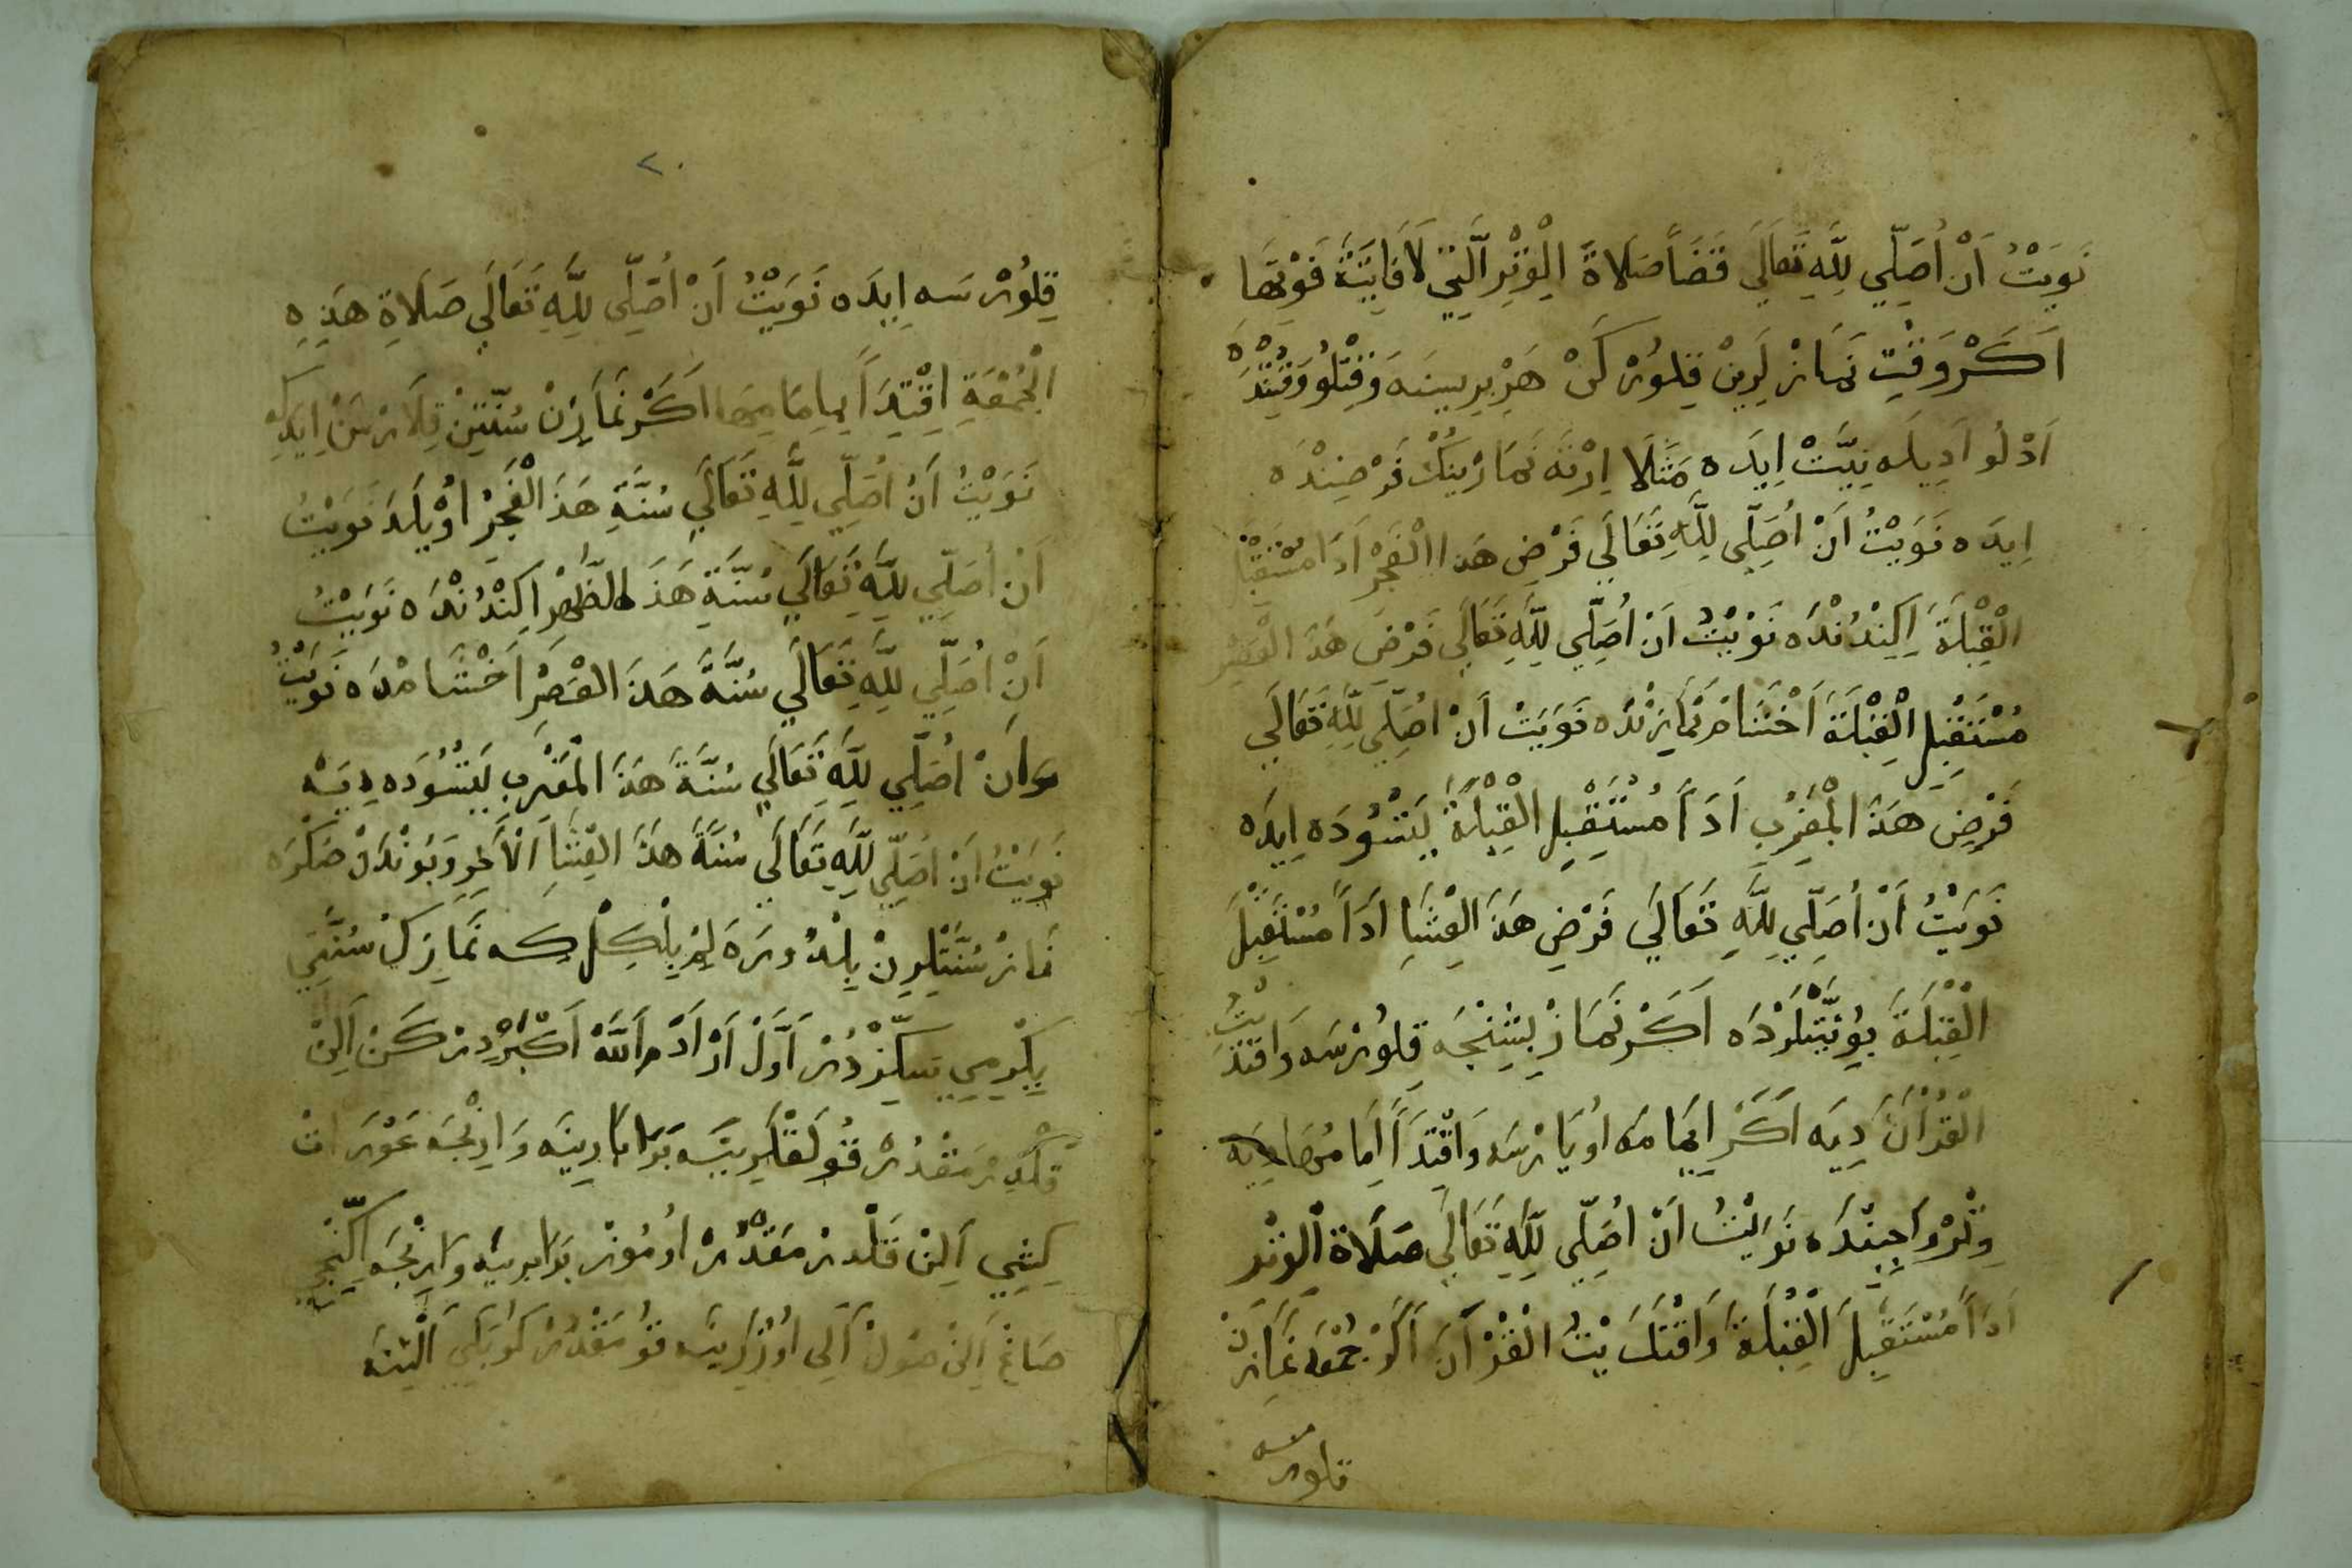 نَوَيْتُ اَنْ اُصَلِّي لِلّٰهِ تَعَالَي قَضَأً صَلَاةَ الْوِتْرِ الَّتِي لَا فَايِتَةً فَوْتِهَا
اَكَرْ وَقْتِ نَمَازْلَرِينْ قِلُورْ كَنْ هَرْ بِرِيسِنَه وَقْتْلُو وَقْتِنْدَه
اَدْلُو اَدِيلَه نِيَّتْ اِيدَه مَثَلَا اِرْتَه نَمَازْينِكْ فَرْضِنْدَه
اِيدَه نَوَيْتُ اَنْ اُصَلِّي لِلّٰهِ تَعَالَي فَرْضِ هَذَا الْفَجْرِ اَدَا مُسْتَقْبِلَ
الْقِبْلَةَ اِكِنْدُنْدَه نَوَيْتُ اَنْ اُصَلِّي لِلّٰهِ تَعَالَي فَرْضَ هَذَ الْعَصْرِ
مُسْتَقْبِلِ الْقِبْلَةَ اَخْشَامْ نَمَازِنْدَه نَوَيْتُ اَنْ اُصَلِّي لِلّٰهِ تَعَالَي
فَرْضَ هَذَ الْمَغْرِبِ اَدَاً مُسْتَقْبِلِ الْقِبْلَةَ يَتْسُودَه اِيدَه
نَوَيْتُ اَنْ اُصَلِّي لِلّٰهِ تَعَالَي فَرْضِ هَذَ الْعِشَاِ اَدَاً مُسْتَقْبِلَ
الْقِبْلَةَ بُونِيَّتْلَرْدَه اَكَرْ نَمَازْ بِشِنْجَه قِلُورْسَه وَاقْتَدَيْتُ
الْقُرْآنَ دِيَه اَكَرْ اِمَامَه اُويَارْسَه وَاقْتِدَاً اِمَامُهَا دِيَه
وِتْرْ وَاجِبِنْدَه نَوَيْتُ اَنْ اُصَلِّي لِلّٰهِ تَعَالَي صَلَاةَ الْوِتْرِ
اَدَاً مُسْتَقْبِلَ الْقِبْلَةَ وَاقْتَدَيْتُ الْقُرْآنَ اَكَرْ جُمْعَه نَمَازِنْ
قلورسه
٢٠
قِلُورْسَه اِيدَه نَوَيْتُ اَنْ اُصَلِّي لِلّٰهِ تَعَالَي صَلَاةِ هَذِهِ
الْجُمْعَةِ اِقْتِدَاً بِاِمَامِهَا اَكَرْ نَمَازِنْ سُنَّتِنْ قِلَارْسَنْ اِيدَه
نَوَيْتُ اَنْ اُصَلِّي لِلّٰهِ تَعَالَي سُنَّةِ هَذَ الْفَجْرِ اُوْيلَدَ نَوَيْتُ
اَنْ اُصَلِّي لِلّٰهِ تَعَالَي سُنَّةِ هَذَ الظُّهْرِ اِكِنْدُنْدَه نَوَيْتُ
اَنْ اُصَلِّي لِلّٰهِ تَعَالَي سُنَّةَ هَذَ الْعَصْرِ اَخْشَامْدَه نَوَيْتُ
اَنْ اُصَلِّي لِلّٰهِ تَعَالَي سُنَّةَ هَذَ الْمَغْرِبِ يَتْسُودَه دِيَه
نَوَيْتُ اَنْ اُصَلِّي لِلّٰهِ تَعَالَي سُنَّةَ هَذَ الْعِشَاِ الْاَخِرِ وَبُونْدَنْ صَكْرَه
نَمَازْ سُنَّتْلَرِنْ بِلْدُورَه لِمْ بِلْكِلْ كِه نَمَازِكْ سُنَّتِي
يِكْرِمِي سَكِّزْدُرْ اَوَّلْ اَللّٰهُ اَكْبَرْ دِرْكَنْ اَلِنْ
قَلْدِرْمَقْدُرْ قُولَقْلَرِينَه بَرَابَارِينَه وَاِرِنْجَه عَوْرَاتْ
كِشِي اَلِنْ قَلْدِرْمَقْدُرْ اُومُوزْ بَرَابَرِينَه وَارِنْجَه اِكِنْجِي
صَاغْ اَلِنْ صُولْ اَلِي اُوزَرِينَه قُومَقْدُرْ كُوبَكِي اَلْتِنَه